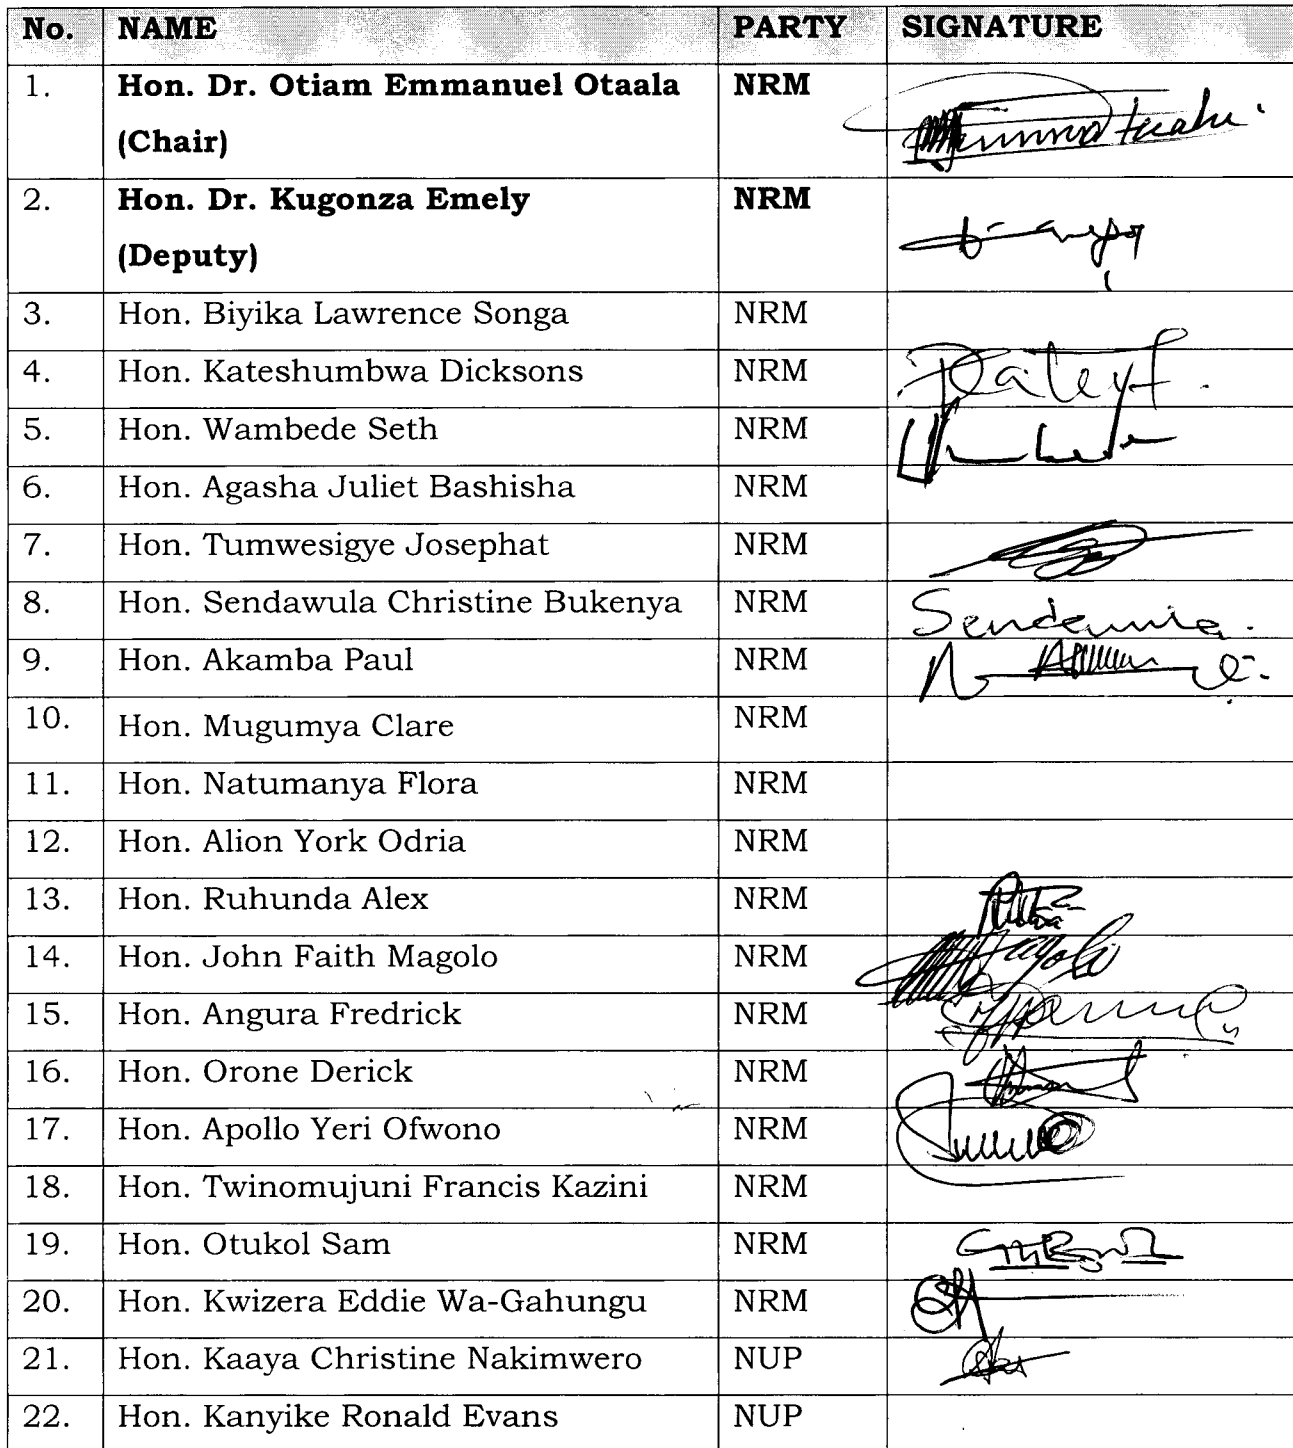 No. NAME PARTY SIGNATURE
1. Hon. Dr. Otiam Emmanuel Otaala NRM
(Chair)
2. Hon. Dr. Kugonza Emely NRM
(Deputy)
3. Hon. Biyika Lawrence Songa NRM
4. Hon. Kateshumbwa Dicksons NRM
5. Hon. Wambede Seth NRM
6. Hon. Agasha Juliet Bashisha NRM
7. Hon. Tumwesigye Josephat NRM
8. Hon. Sendawula Christine Bukenya NRM
9. Hon. Akamba Paul NRM
10. Hon. Mugumya Clare NRM
11. Hon. Natumanya Flora NRM
12. Hon. Alion York Odria NRM
13. Hon. Ruhunda Alex NRM
14. Hon. John Faith Magolo NRM
15. Hon. Angura Fredrick NRM
16. Hon. Orone Derick NRM
17. Hon. Apollo Yeri Ofwono NRM
18. Hon. Twinomujuni Francis Kazini NRM
19. Hon. Otukol Sam NRM
20. Hon. Kwizera Eddie Wa-Gahungu NRM
21. Hon. Kaaya Christine Nakimwero NUP
22. Hon. Kanyike Ronald Evans NUP